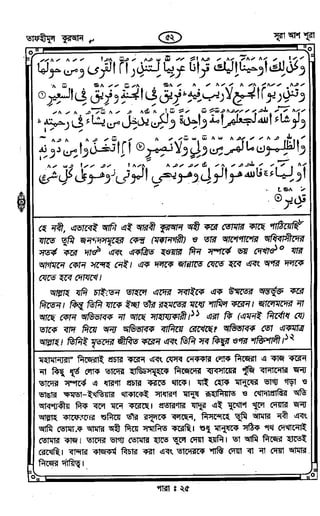 তাফহীমুল কুরআন
৫২
সূরা আশ শূরা
وَكَذٰلِكَ اَوْحَيْنَآ اِلَيْكَ قُرْاٰنًا عَرَبِيًّا لِّتُنْذِرَ اُمَّ الْقُرٰى وَمَنْ حَوْلَهَا
وَتُنْذِرَ يَوْمَ الْجَمْعِ لَا رَيْبَ فِيْهِ فَرِيْقٌ فِى الْجَنَّةِ وَفَرِيْقٌ فِى السَّعِيْرِ ۝
وَلَوْ شَآءَ اللّٰهُ لَجَعَلَهُمْ اُمَّةً وَّاحِدَةً وَّلٰكِنْ يُّدْخِلُ مَنْ يَّشَآءُ فِىْ رَحْمَتِهٖ
وَالظّٰلِمُوْنَ مَا لَهُمْ مِّنْ وَّلِىٍّ وَّلَا نَصِيْرٍ ۝ اَمِ اتَّخَذُوْا مِنْ دُوْنِهٖٓ
اَوْلِيَآءَ فَاللّٰهُ هُوَ الْوَلِىُّ وَهُوَ يُحْىِ الْمَوْتٰى وَهُوَ عَلٰى كُلِّ شَىْءٍ
قَدِيْرٌ ۝
হে নবী, এভাবেই আমি এই আরবী কুরআন অহী করে তোমার কাছে পাঠিয়েছি
যাতে তুমি জনপদসমূহের কেন্দ্র (মক্কানগরী) ও তার আশেপাশের অধিবাসীদের
সতর্ক করে দাও এবং একত্রিত হওয়ার দিন সম্পর্কে ভয় দেখাও যার
আগমনে কোন সন্দেহ নেই। এক দলকে জান্নাতে যেতে হবে এবং অপর দলকে
যেতে হবে দোযখে।
আল্লাহ যদি চাইতেন তাহলে এদের সবাইকে এক উম্মতের অন্তর্ভুক্ত করে
দিতেন। কিন্তু তিনি যাকে ইচ্ছা তাঁর রহমতের মধ্যে শামিল করেন। জালেমদের না
আছে কোন অভিভাবক না আছে সাহায্যকারী।১১ এরা কি (এমনই নির্বোধ যে)
তাকে বাদ দিয়ে অন্য অভিভাবক বানিয়ে রেখেছে। অভিভাবক তো একমাত্র
আল্লাহ। তিনিই মৃতদের জীবিত করেন এবং তিনি সব কিছুর ওপর শক্তিশালী।১২
মহামান্যরা" নিজেরাই প্রচার করেন এবং যেসব নেককার লোক নিজেরা এ কাজ করেন
না কিন্তু ধূর্ত লোক তাদের হাড্ডিসমূহকে নিজেদের ব্যবসায়ের পুঁজি বানানোর জন্য
তাদের সম্পর্কে এ ধারণা প্রচার করতে থাকে। যাই হোক মানুষের ভাগ্য গড়া ও
ভাঙ্গার ক্ষমতা-ইখতিয়ার থাকাকেই সাধারণ মানুষ রূহানিয়াত ও খোদাপ্রাপ্তির অতি
আবশ্যকীয় দিক বলে মনে করেছে। প্রতারণার যাদুর এই মুখোশ খুলে দেয়ার জন্য
আল্লাহ কাফেরদের শুনিয়ে তাঁর রসূলকে বলছেন, নিসন্দেহে তুমি আমার নবী এবং
আমি তোমাকে আমার অহী দিয়ে সম্মানিত করেছি। শুধু মানুষকে সঠিক পথ দেখানোই
তোমার কাজ। তাদের ভাগ্য তোমার হাতে তুলে দেয়া হয়নি। তা আমি নিজের হাতেই
রেখেছি। বান্দার কাজকর্ম বিচার করা এবং তাদেরকে শাস্তি দেয়া বা না দেয়া আমার
নিজের দায়িত্ব।
পারা : ২৫